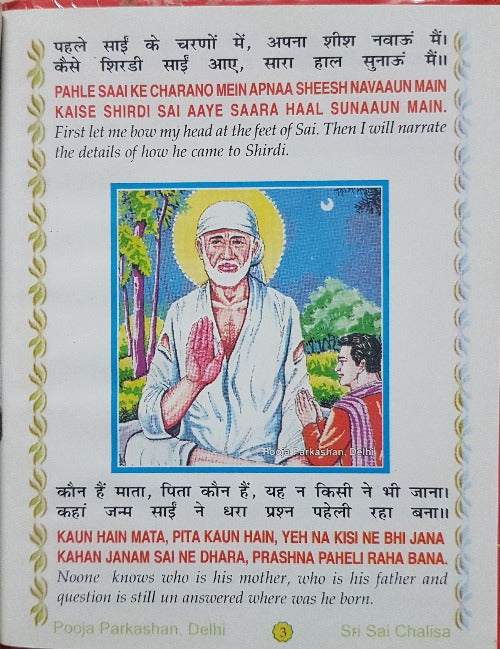 पहले साईं के चरणों में, अपना शीश नवाऊं मैं।
कैसे शिरडी साईं आए, सारा हाल सुनाऊं मैं॥
PAHLE SAAI KE CHARANO MEIN APNAA SHEESH NAVAAUN MAIN
KAISE SHIRDI SAI AAYE SAARA HAAL SUNAAUN MAIN.
First let me bow my head at the feet of Sai. Then I will narrate
the details of how he came to Shirdi.
Pooja Parkashan, Delhi
कौन हैं माता, पिता कौन हैं, यह न किसी ने भी जाना।
कहां जन्म साईं ने धरा प्रश्न पहेली रहा बना॥
KAUN HAIN MATA, PITA KAUN HAIN, YEH NA KISI NE BHI JANA
KAHAN JANAM SAI NE DHARA, PRASHNA PAHELI RAHA BANA.
Noone knows who is his mother, who is his father and
question is still un answered where was he born.
Pooja Parkashan, Delhi 3 Sri Sai Chalisa